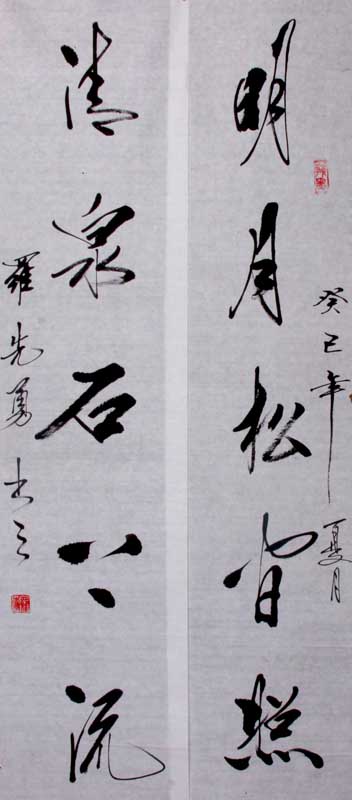 癸巳年夏月
明月松间照
清泉石上流
羅先勇书之